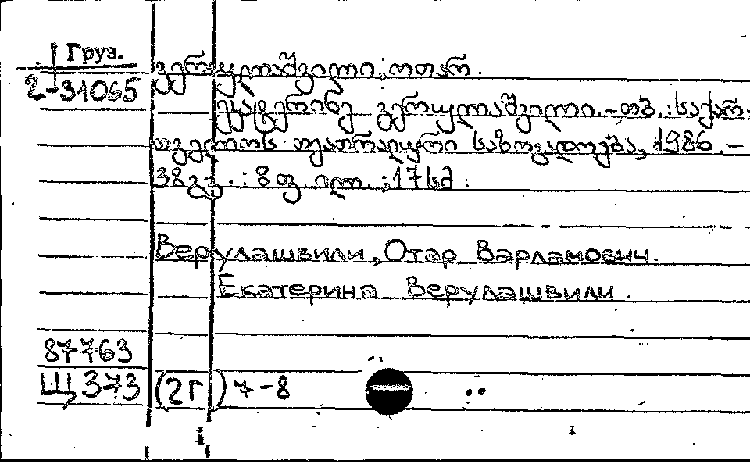 Груз.
2-31065
ვერულაშვილი, ოთარ.
ეკატერინე ვერულაშვილი. - თბ. : საქარ-
თველოს თეატრალური საზოგადოება, 1986. -
38 გვ. : 8 ფ. ილ. ; 17 სმ.
Верулашвили, Отар Варламович.
Екатерина Верулашвили.
87763
Щ373(2Г)7-8